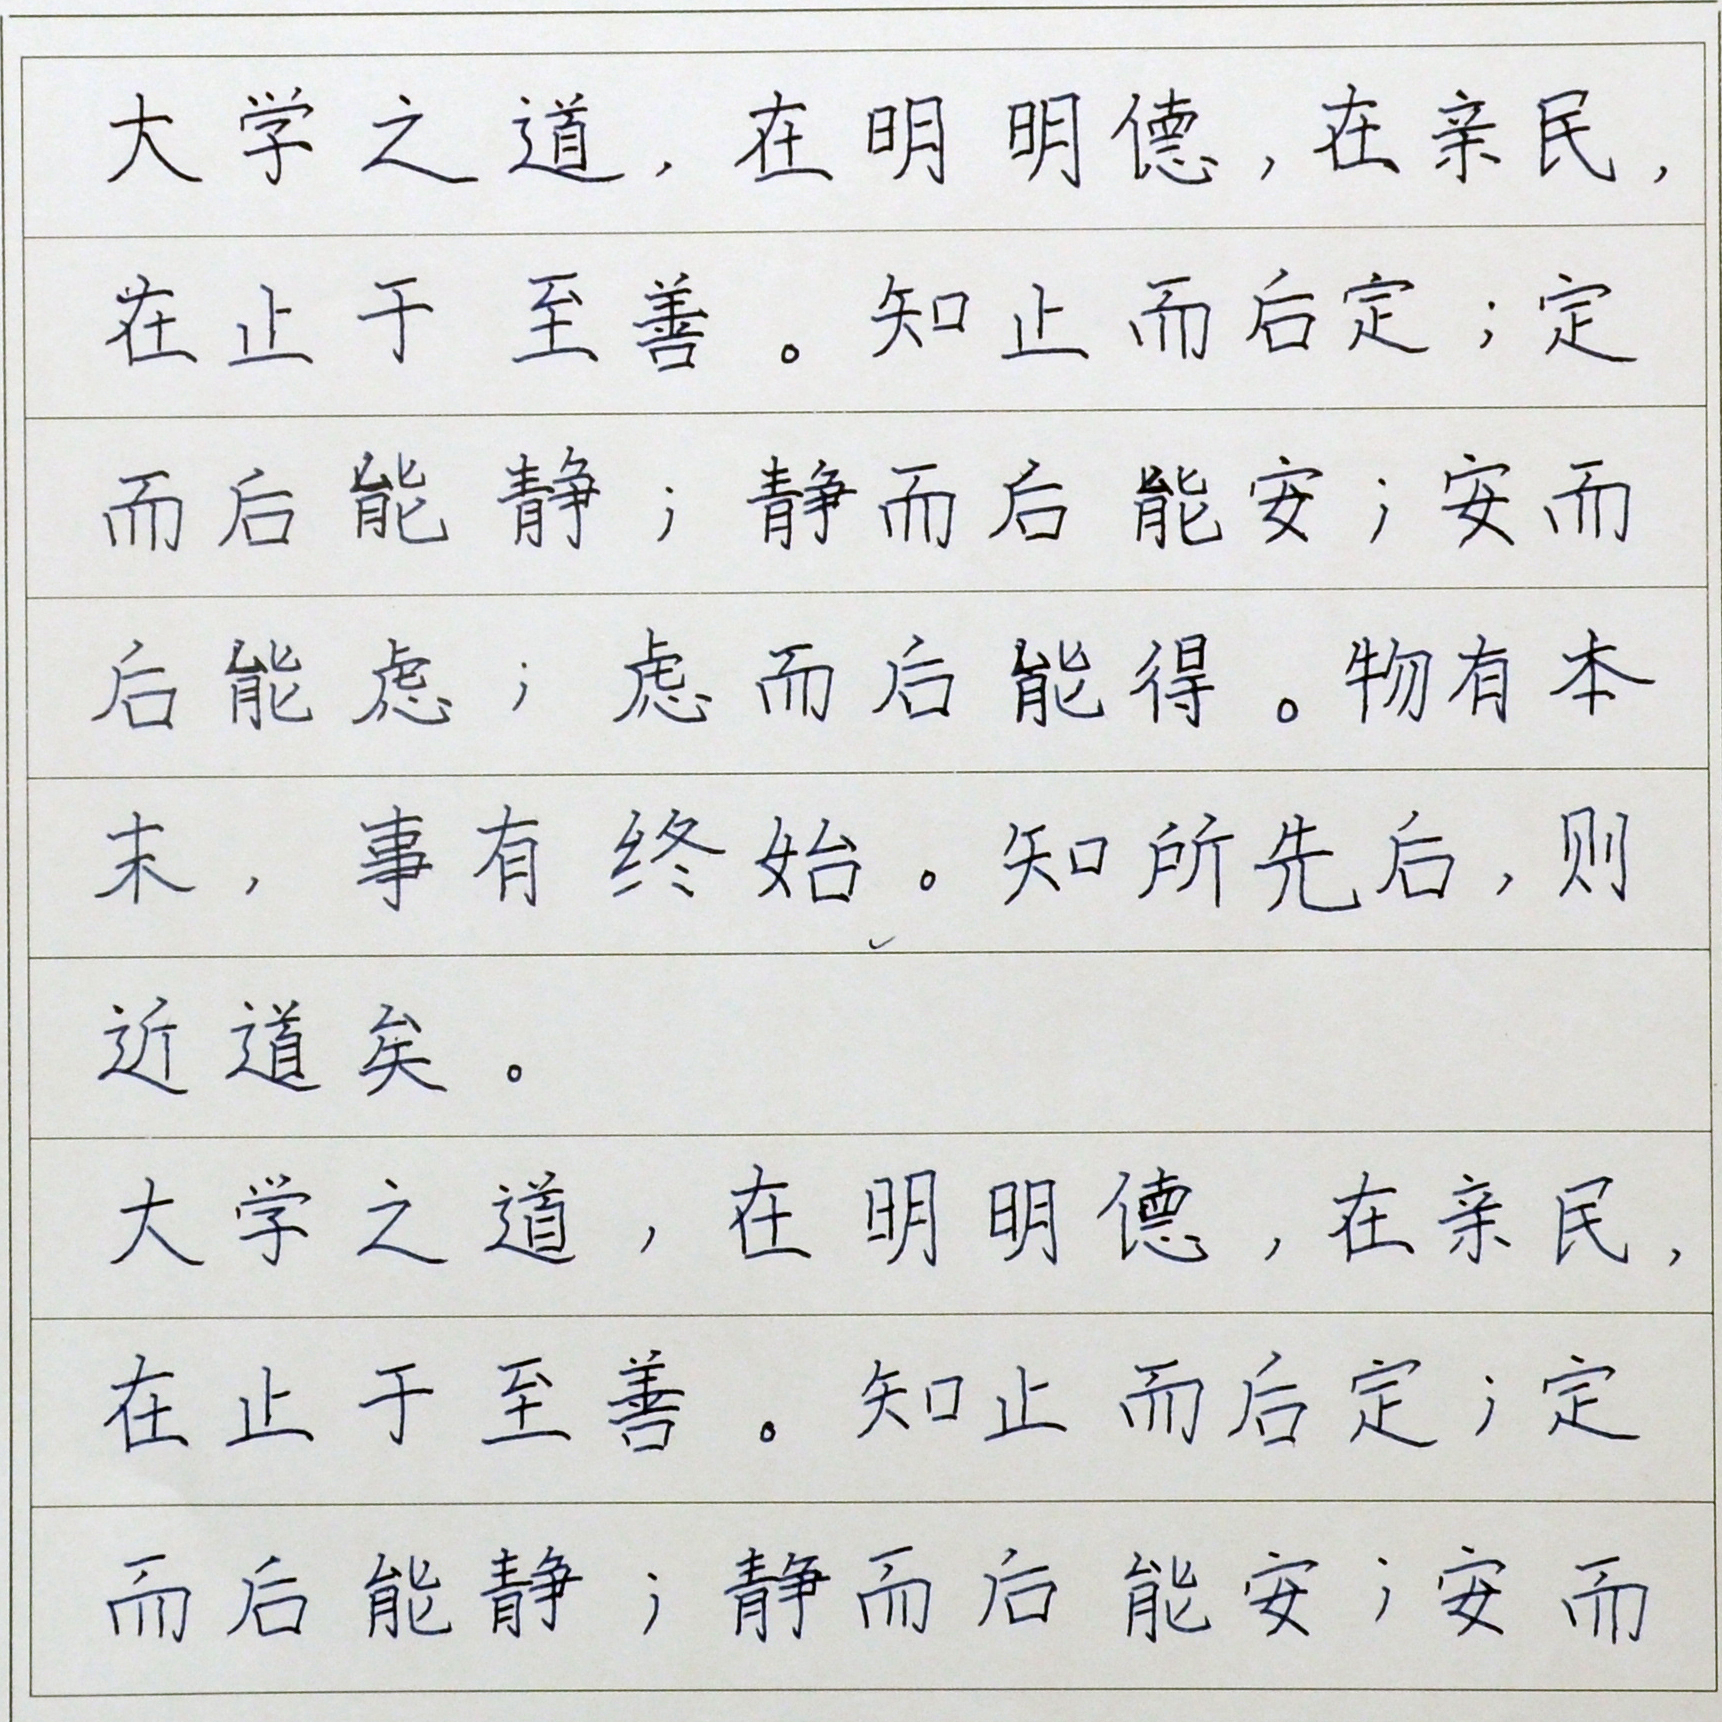 大学之道，在明明德，在亲民，
在止于至善。知止而后定；定
而后能静；静而后能安；安而
后能虑；虑而后能得。物有本
末，事有终始。知所先后，则
近道矣。
大学之道，在明明德，在亲民，
在止于至善。知止而后定；定
而后能静；静而后能安；安而